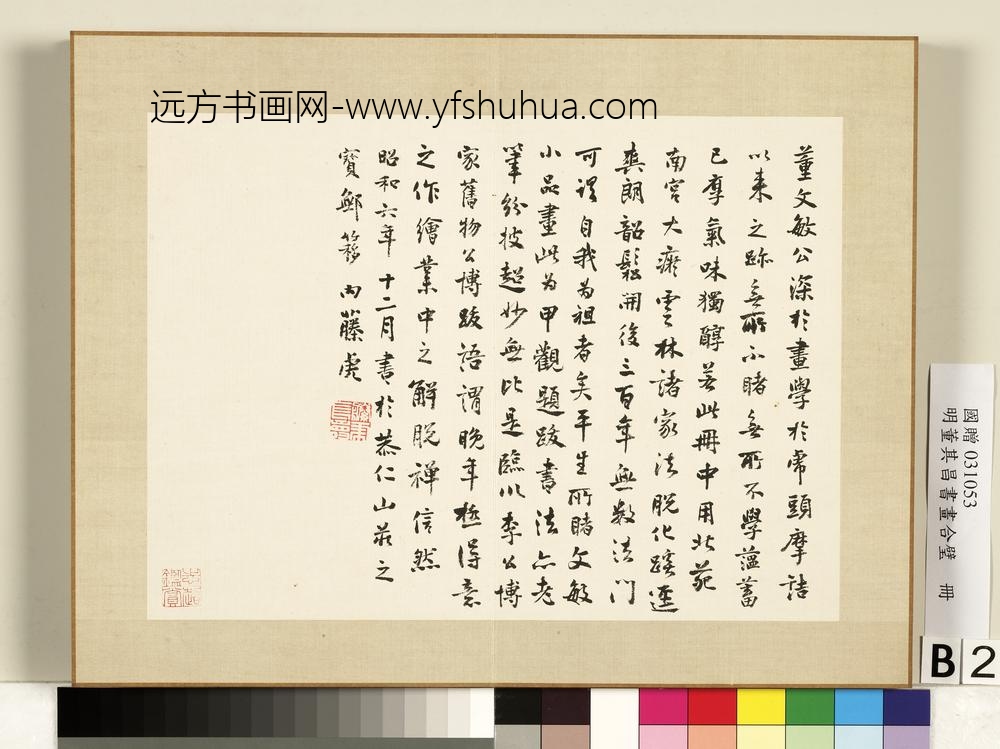 远方书画网-www.yfshuhua.com
董文敏公深於畫學於常頭摩詰
以来之跡無所不睹無所不學蘊蓄
已厚氣味獨醇若此冊中用北苑
南宮大癡雲林諸家法脱化蹊逕
爽朗韶鬆開後三百年無數法門
可謂自我为祖者矣平生所睹文敏
小品畫此为甲觀題跋書法亦老
筆紛披超妙無比是臨川李公博
家舊物公博跋語謂晚年極得意
之作繪業中之解脱禅信然
昭和六年十二月書於恭仁山莊之
寶鄦簃 内藤虎
國贈 031053
明董其昌書畫合璧 冊
B 2